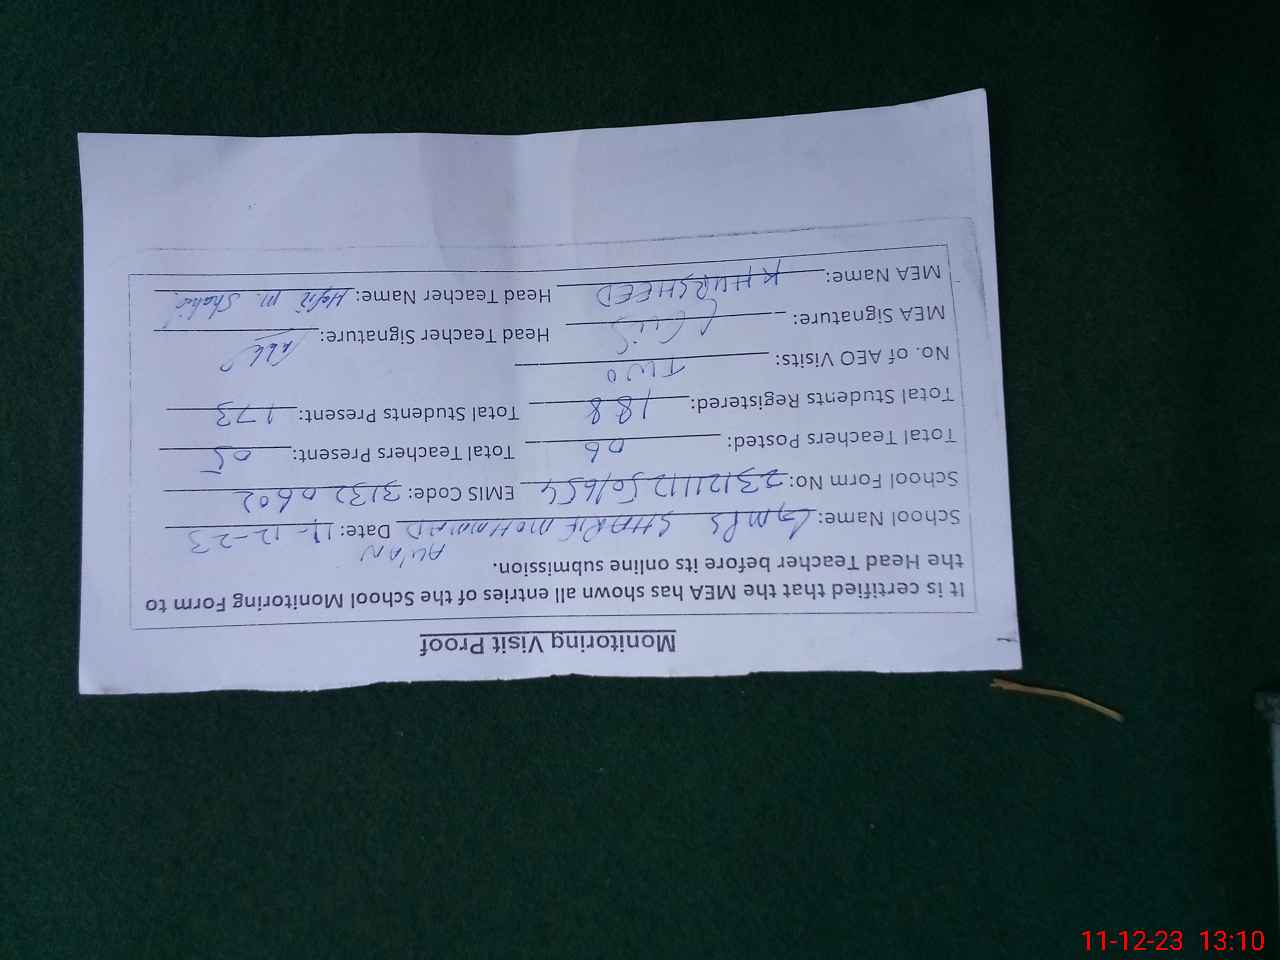 Monitoring Visit Proof
It is certified that the MEA has shown all entries of the School Monitoring Form to
the Head Teacher before its online submission.
AWAN
School Name: GMPS SHARIF MOHAMMAD Date: 11-12-23
School Form No: EMIS Code: 31320602
Total Teachers Posted: 06 Total Teachers Present: 05
Total Students Registered: 188 Total Students Present: 173
No. of AEO Visits: TWO
MEA Signature: Head Teacher Signature:
MEA Name: KHURSHEED Head Teacher Name: Hafiz M. Shahid
11-12-23 13:10